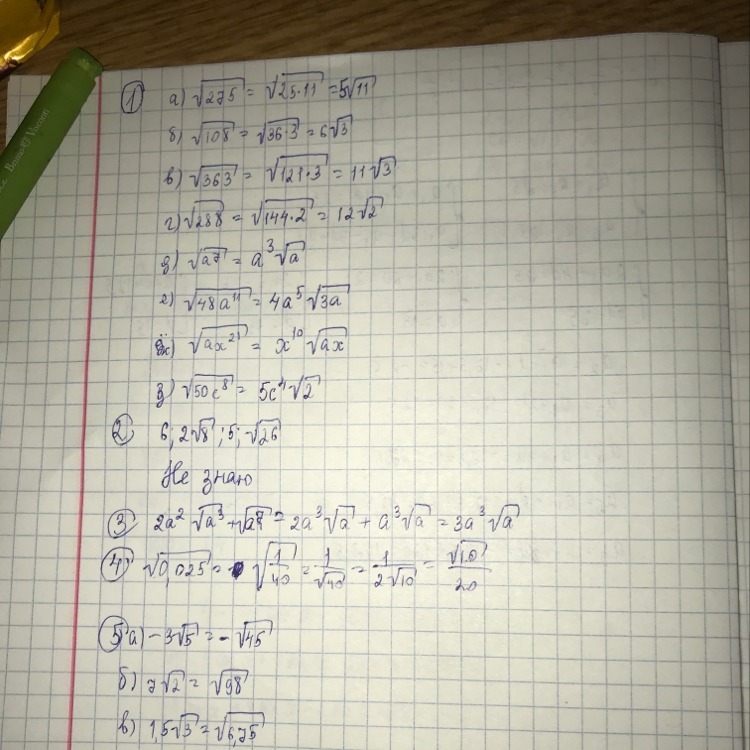 1) а) √275 = √25·11 = 5√11
б) √108 = √36·3 = 6√3
в) √363 = √121·3 = 11√3
г) √288 = √144·2 = 12√2
д) √a7 = a³√a
е) √48a¹¹ = 4a⁵√3a
ж) √ax²¹ = x¹⁰√ax
з) √50c⁸ = 5c⁴√2
2) 6; 2√8; 5; √26
Не знаю
3) 2a²√a³ + √a7 = 2a³√a + a³√a = 3a³√a
4) √0,025 = √1/40 = 1/√40 = 1/2√10 = √10/20
5) а) -3√5 = -√45
б) 7√2 = √98
в) 1,5√3 = √6,75